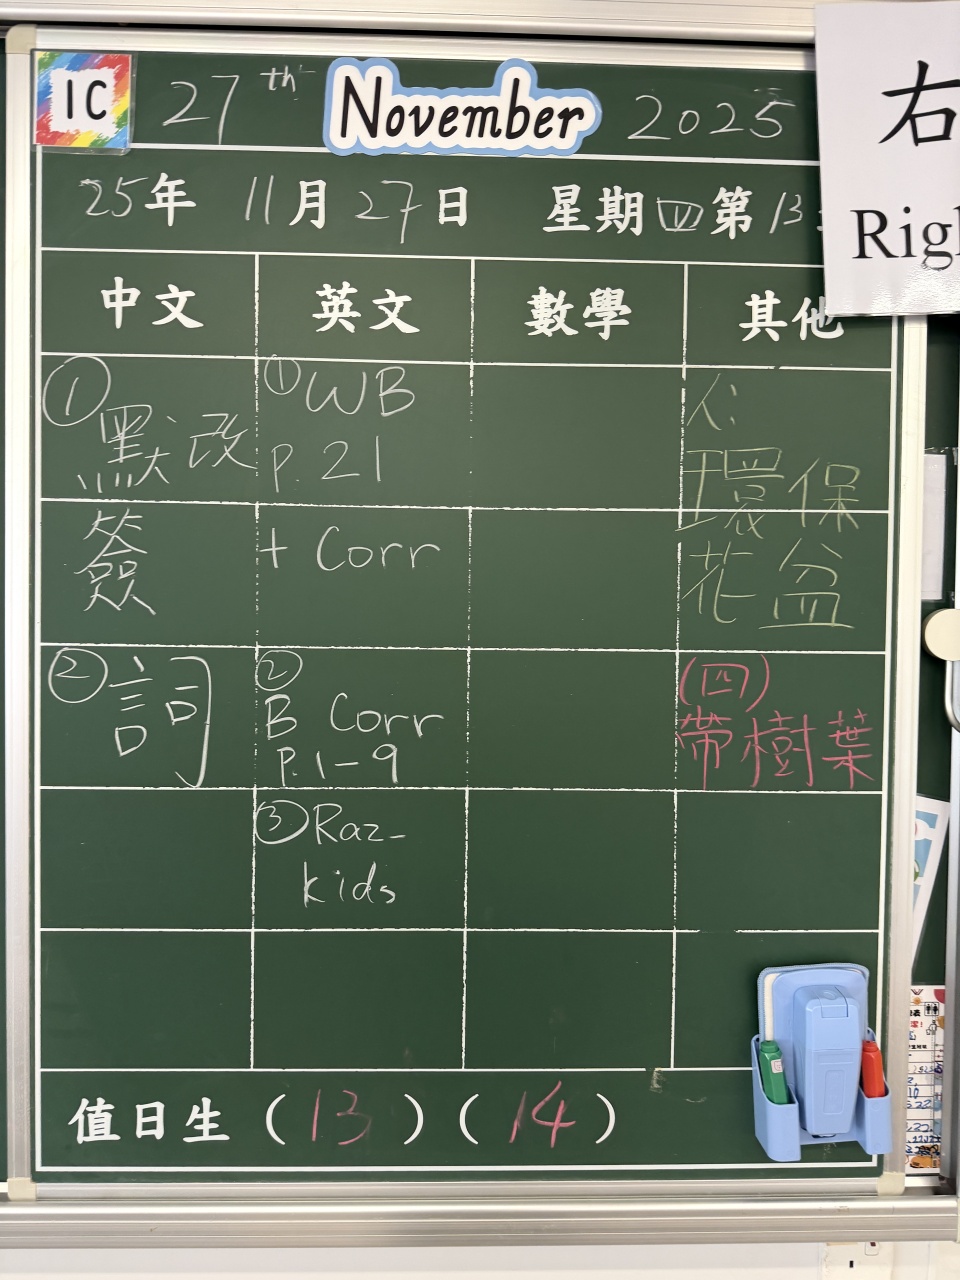 1C 27th November 2025
25年 11月27日 星期四第13
右
Rig
中文 英文 數學 其他
① 默改
簽
② 詞
① WB
p. 21
+ Corr
②
B Corr
P.1-9
③ Raz-
kids
人:
環保
花盆
(四)
帶樹葉
值日生 (13) (14)